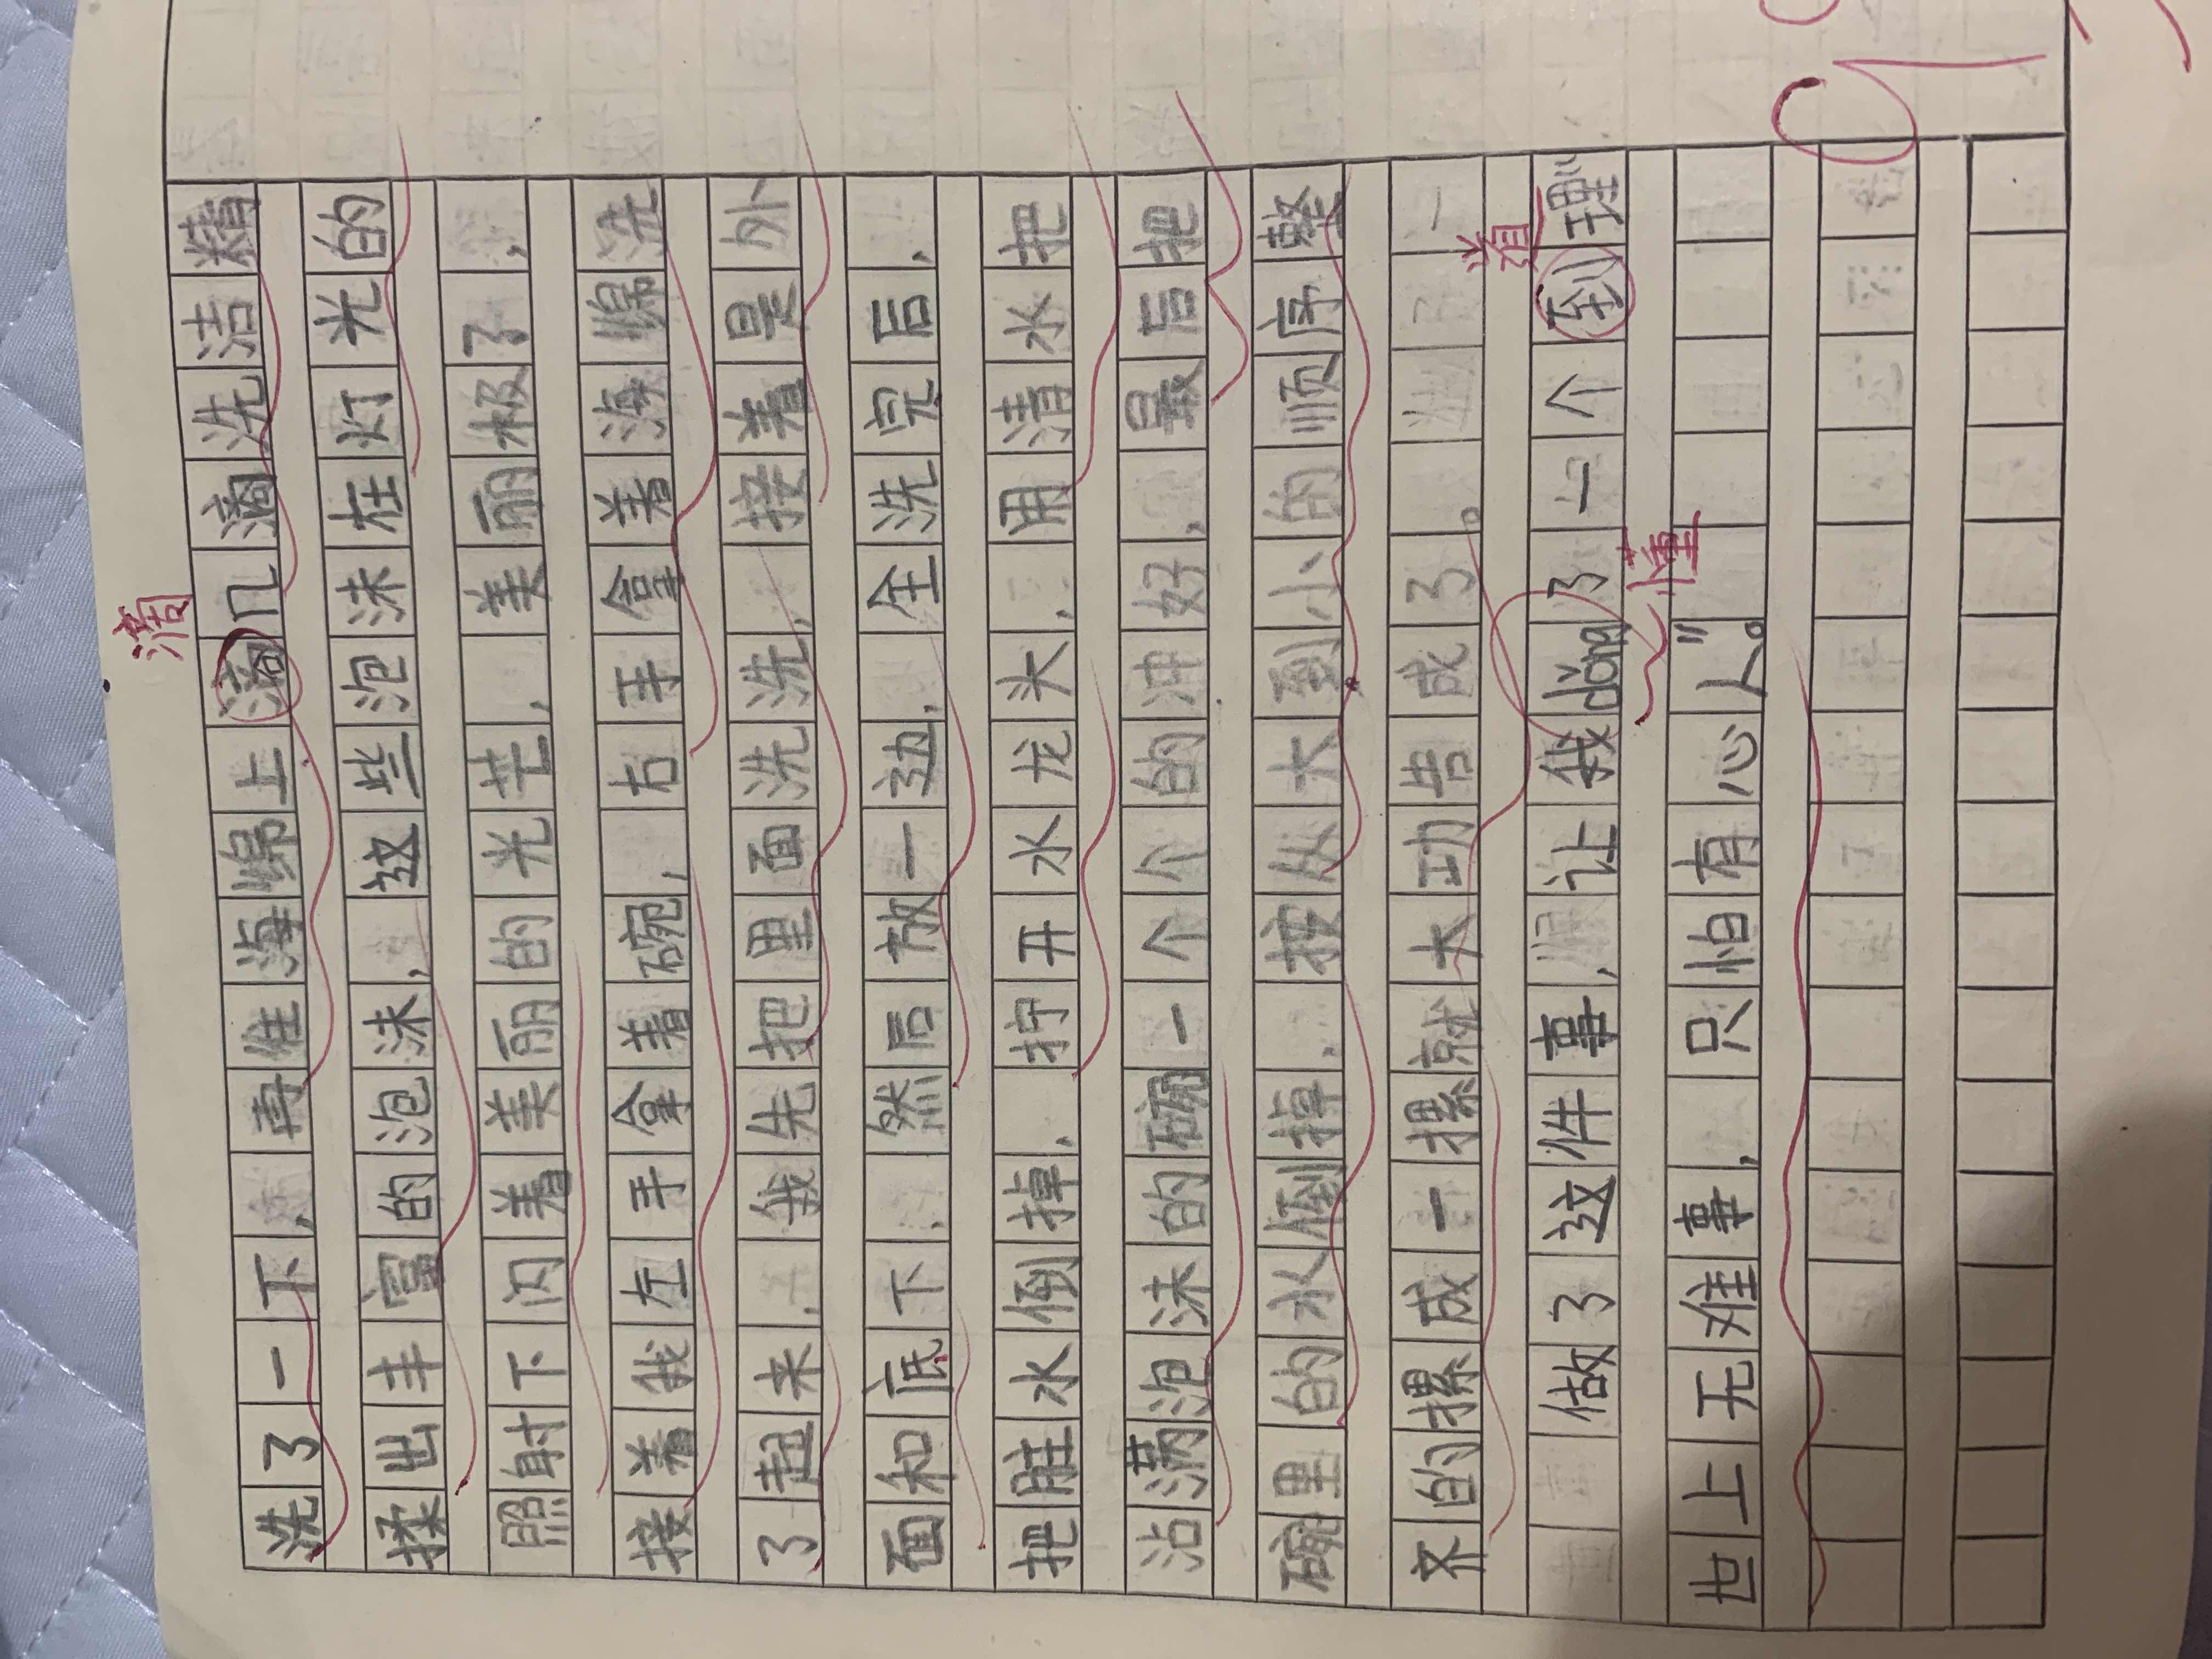 洗了一下，再往海绵上滴几滴洗洁精
滴
揉出丰富的泡沫，这些泡沫在灯光的
照射下闪着美丽的光芒，美丽极了，
接着我左手拿着碗，右手拿着海绵洗
了起来，我先把里面洗洗，接着是外
面和底下，然后放一边，全洗完后，
把脏水倒掉，拧开水龙头，用清水把
沾满泡沫的碗一个个的冲好，最后把
碗里的水倒掉，按从大到小的顺序整
齐的摞成一摞就大功告成了。
道
做了这件事，让我dǒng了一个到理“
懂
世上无难事，只怕有心人”。